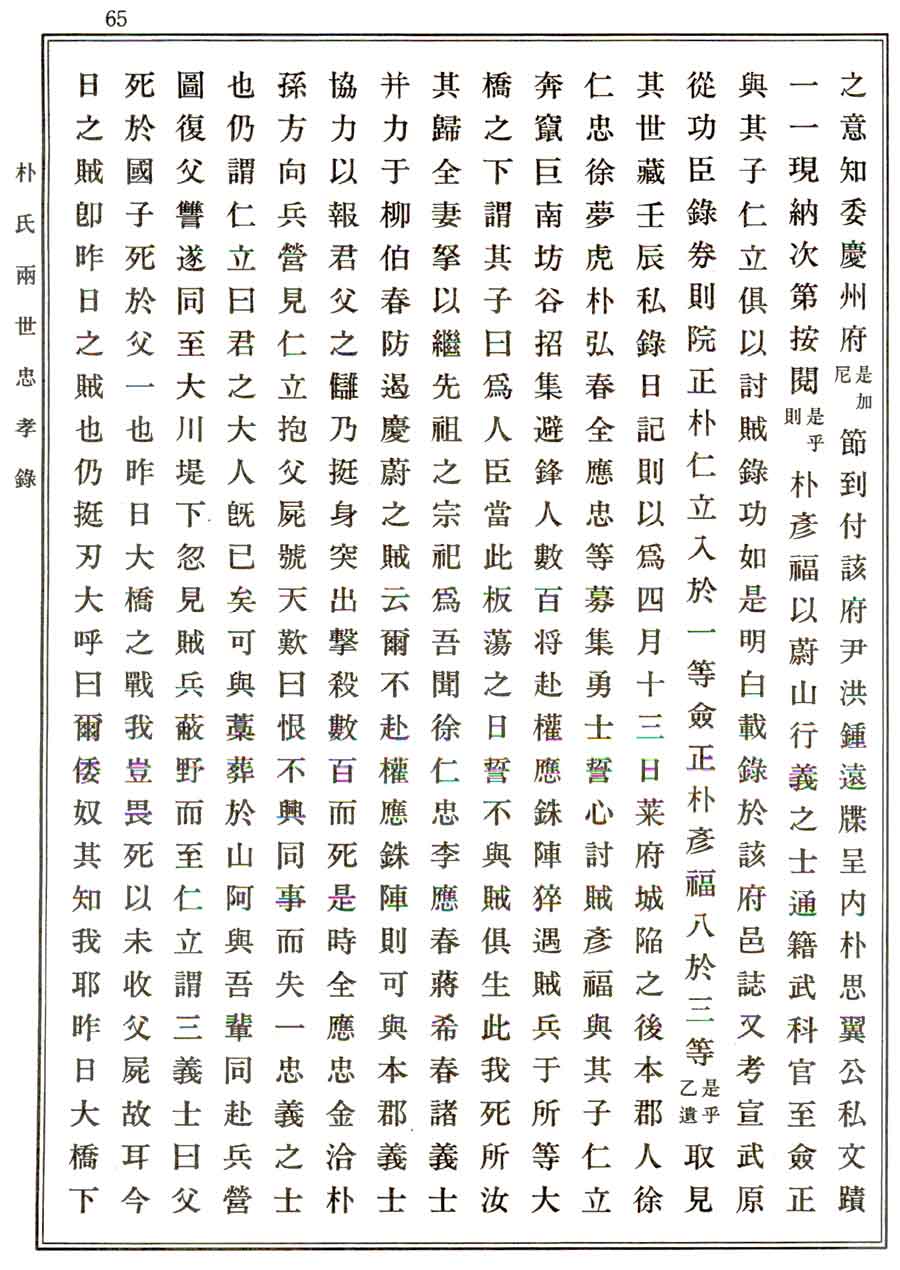 65
之意知委慶州府是加尼節到付該府尹洪鍾遠牒呈内朴思翼公私文蹟
一一現納次第按閱是乎則朴彥福以蔚山行義之士通籍武科官至僉正
與其子仁立俱以討賊錄功如是明白載錄於該府邑誌又考宣武原
從功臣錄券則院正朴仁立入於一等僉正朴彥福八於三等是乎乙遣取見
其世藏壬辰私錄日記則以爲四月十三日萊府城陷之後本郡人徐
仁忠徐夢虎朴弘春全應忠等募集勇士誓心討賊彥福與其子仁立
奔竄巨南坊谷招集避鋒人數百将赴權應銖陣猝遇賊兵于所等大
橋之下謂其子曰爲人臣當此板蕩之日誓不與賊俱生此我死所汝
其歸全妻孥以繼先祖之宗祀爲吾聞徐仁忠李應春蔣希春諸義士
并力于柳伯春防遏慶蔚之賊云爾不赴權應銖陣則可與本郡義士
協力以報君父之讎乃挺身突出擊殺數百而死是時全應忠金洽朴
孫方向兵營見仁立抱父屍號天歎曰恨不興同事而失一忠義之士
也仍謂仁立曰君之大人旣已矣可與藁葬於山阿與吾輩同赴兵營
圖復父讐遂同至大川堤下忽見賊兵蔽野而至仁立謂三義士曰父
死於國子死於父一也昨日大橋之戰我豈畏死以未收父屍故耳今
日之賊卽昨日之賊也仍挺刃大呼曰爾倭奴其知我耶昨日大橋下
朴氏兩世忠孝錄